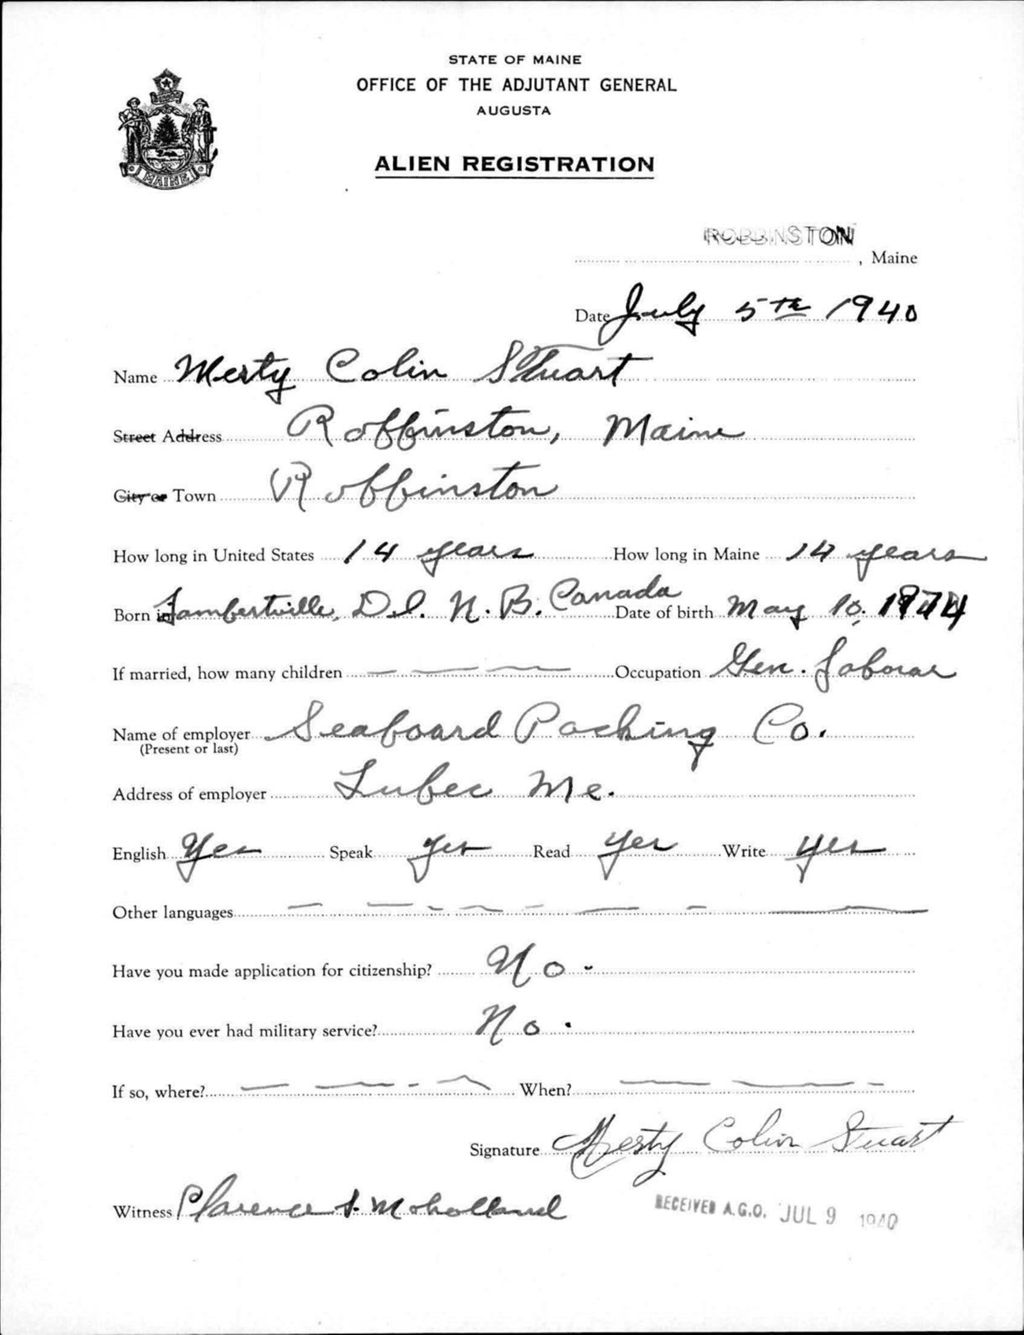 STATE OF MAINE
OFFICE OF THE ADJUTANT GENERAL
AUGUSTA
ALIEN REGISTRATION
MAINE
ROBBINSTON
, Maine
Date July 5th 1940
Name Mesty Colin Stuart
Street Address Robbinston, Maine
City or Town Robbinston
How long in United States 14 years How long in Maine 14 years
Born in Lambertville, D.I. N.B. Canada Date of birth May 10. 1874
If married, how many children — — — Occupation Gen. Laborer
Name of employer Seaboard Packing Co.
(Present or last)
Address of employer Lubec Me.
English Yes Speak yes Read yes Write yes
Other languages — — — — — — —
Have you made application for citizenship? No -
Have you ever had military service? No.
If so, where? — — - — When? — — -
Signature Mesty Colin Stuart
Witness Clarence S. Moholland
RECEIVED A.G.O. JUL 9 1940